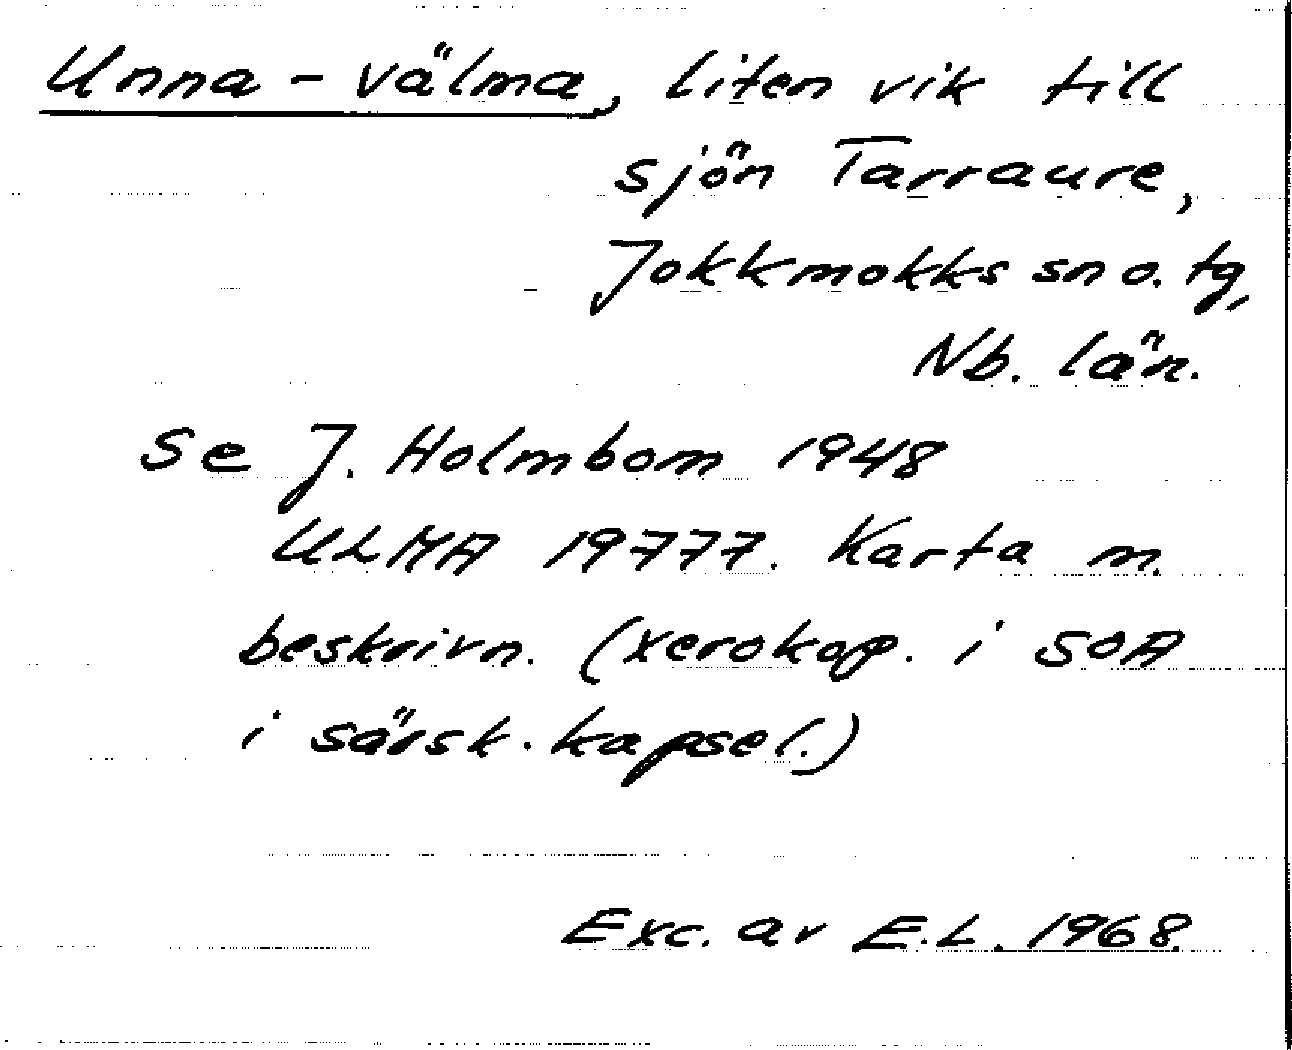 Unna-välma, liten vik till
sjön Tarraure,
Jokkmokks sn o. tg,
Nb. län.
Se J. Holmbom 1948
ULMA 19777. Karta m.
beskrivn. (xerokop. i SOA
i särsk. kapsel.)
Exc. av E.L. 1968.